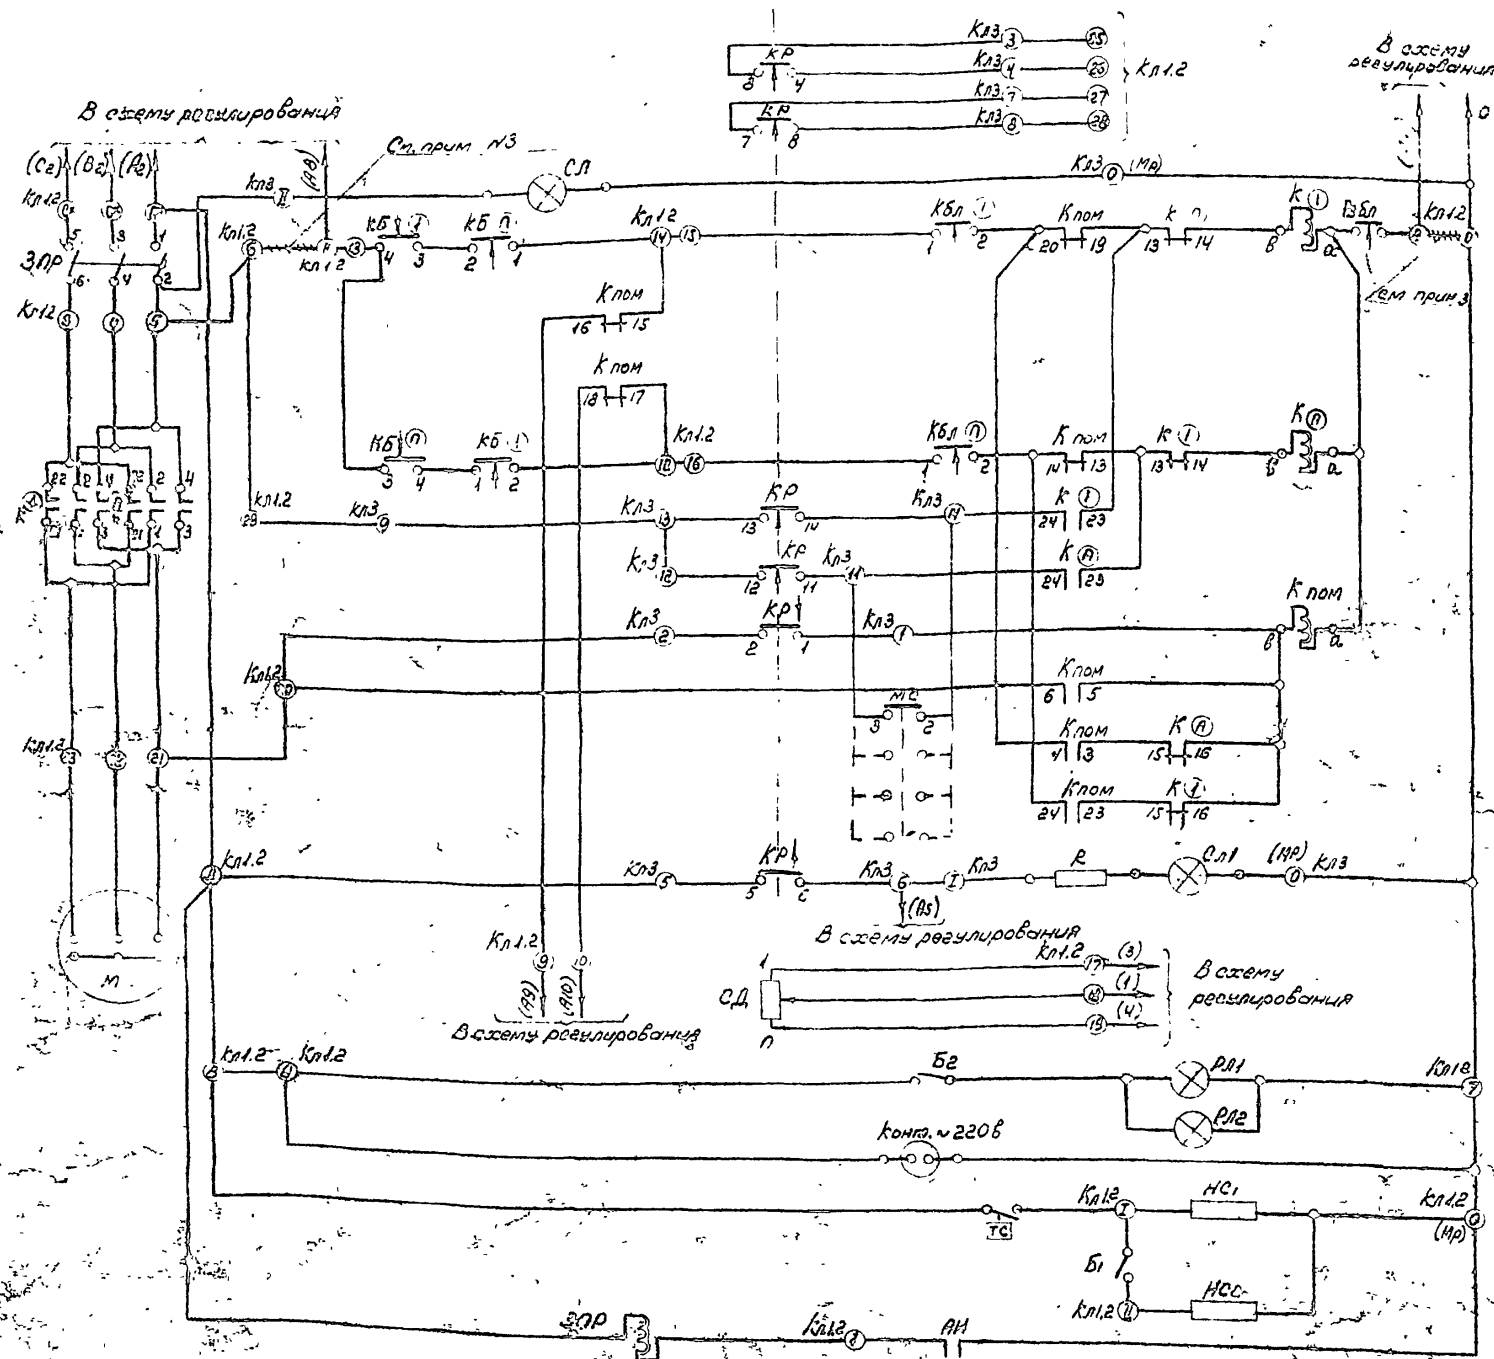 Кл3 3 25
КР 3 4
Кл3 4 26
Кл1.2
Кл3 7 27
КР 7 8
Кл3 8 28
В схему регулирования
В схему регулирования
0
См. прим. №3
(C2) (B2) (A2)
(A8)
Кл3 II
СЛ
Кл3 0 (МР)
Кл1.2
5 3 1
ЗПР
6 4 2
Кл1.2
Кл1.2 6
Кл1.2 13
КБ I 4 3
КБ П 2 1
Кл1.2 14 15
КБЛ I 1 2
К пом 20 19
К П 13 14
К I в а
ВБЛ
Кл1.2
См прим 3
К пом
16 15
К пом
18 17
КБ П 3 4
КБ I 1 2
Кл1.2 16
КБЛ П 1 2
К пом 14 13
К I 13 14
К П в а
22 2 4 22 2 4
3 21 1 3
Кл1.2 29
Кл3 9
Кл3 13
КР 13 14
Кл3 14
К I 24 23
Кл3 12
КР 12 11
Кл3 11
К П 24 23
Кл3 2
КР 2 1
Кл3 1
К пом в а
Кл1.2
К пом 6 5
МС 3 2
К пом 4 3
К П 15 16
К пом 24 23
К I 15 16
Кл1.2 23 22 21
Кл1.2
Кл3 5
КР 5 6
Кл3 6
I Кл3
R
Сл1
(МР) 0 Кл3
(A5)
В схему регулирования
М
Кл1.2 9 10
(A9) (A10)
В схему регулирования
СД
1
П
Кл1.2 17 (3)
18 (1)
19 (4)
В схему
регулирования
Кл1.2 В
Кл1.2
Б2
РЛ1
РЛ2
Кл1.2 7
Конт. ~220в
ТС
Кл1.2 I
НС1
Кл1.2 0
(МР)
Б1
Кл1.2 II
НС2
ЗПР
Кл1.2
АН